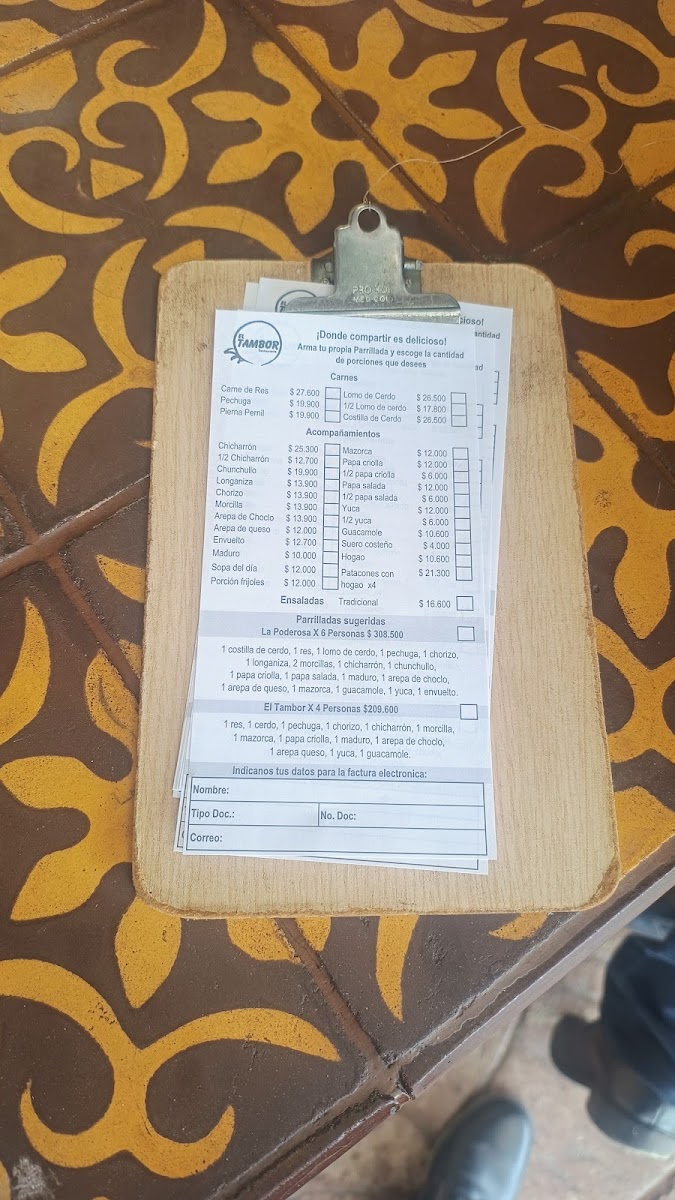 PRO
MED
EL
TAMBOR
¡Donde compartir es delicioso!
Arma tu propia Parrillada y escoge la cantidad
de porciones que desees
Carnes
Carne de Res $ 27.600 Lomo de Cerdo $ 26.500
Pechuga $ 19.900 1/2 Lomo de cerdo $ 17.800
Pierna Pernil $ 19.900 Costilla de Cerdo $ 26.500
Acompañamientos
Chicharrón $ 25.300 Mazorca $ 12.000
1/2 Chicharrón $ 12.700 Papa criolla $ 12.000
Chunchullo $ 19.900 1/2 papa criolla $ 6.000
Longaniza $ 13.900 Papa salada $ 12.000
Chorizo $ 13.900 1/2 papa salada $ 6.000
Morcilla $ 13.900 Yuca $ 12.000
Arepa de Choclo $ 13.900 1/2 yuca $ 6.000
Arepa de queso $ 12.000 Guacamole $ 10.600
Envuelto $ 12.700 Suero costeño $ 4.000
Maduro $ 10.000 Hogao $ 10.600
Sopa del día $ 12.000 Patacones con $ 21.300
Porción frijoles $ 12.000 hogao x4
Ensaladas Tradicional $ 16.600
Parrilladas sugeridas
La Poderosa X 6 Personas $ 308.500
1 costilla de cerdo, 1 res, 1 lomo de cerdo, 1 pechuga, 1 chorizo,
1 longaniza, 2 morcillas, 1 chicharrón, 1 chunchullo,
1 papa criolla, 1 papa salada, 1 maduro, 1 arepa de choclo,
1 arepa de queso, 1 mazorca, 1 guacamole, 1 yuca, 1 envuelto.
El Tambor X 4 Personas $209.600
1 res, 1 cerdo, 1 pechuga, 1 chorizo, 1 chicharrón, 1 morcilla,
1 mazorca, 1 papa criolla, 1 maduro, 1 arepa de choclo,
1 arepa queso, 1 yuca, 1 guacamole.
Indicanos tus datos para la factura electronica:
Nombre:
Tipo Doc.: No. Doc:
Correo: